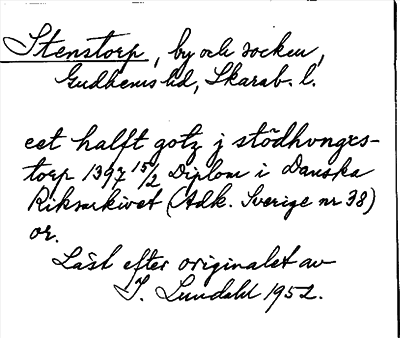 Stenstorp, by och socken,
Gudhems hd, Skarab. l.
eet halft gotz j stödhongxs-
torp 1397 15/2 Diplom i Danska
Riksarkivet (Adk. Sverige nr 38)
or.
Läst efter originalet av
I. Lundahl 1952.